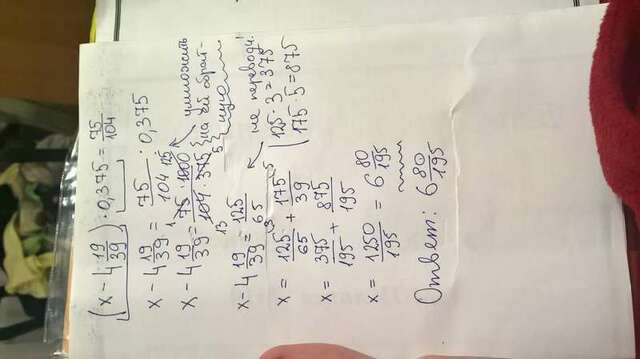 (x - 4 19/39) · 0,375 = 75/104
x - 4 19/39 = 75/104 · 0,375
x - 4 19/39 = 75 · 1000/104 · 375
1 125 13 5
умножить
на ей обрат-
ную
x - 4 19/39 = 125/65
не переводи!
x = 125/65 + 175/39
125 · 3 = 375
175 · 5 = 875
x = 375/195 + 875/195
x = 1250/195 = 6 80/195
Ответ: 6 80/195